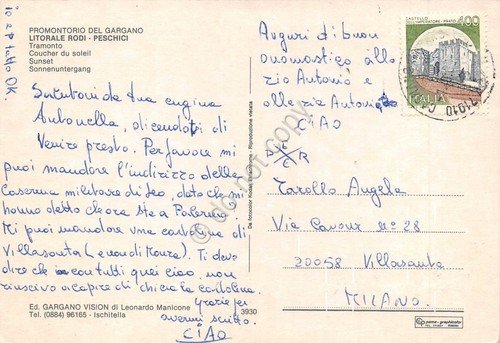 PROMONTORIO DEL GARGANO
LITORALE RODI - PESCHICI
Tramonto
Coucher du soleil
Sunset
Sonnenuntergang
io e pp tutto OK.
Salutoni da tua cugina
Antonella, dicendoti di
Venire presto. Per favore mi
puoi mandare l'indirizzo della
Caserma militare di Leo, dato che mi
hanno detto che ora sta a Palermo.
Mi puoi mandare una cartolina di
Villasanta (e non di Monza). Ti devo
dire che con tutti quei ciao, non
riuscivo a capire di chi era la cartolina.
Grazie per
avermi scritto.
CIAO
Ed. GARGANO VISION di Leonardo Manicone
Tel. (0884) 96165 - Ischitella
3930
Da fotocolor Kodak Ektachrome - Riproduzione vietata
Auguri di buon
onomastico allo
zio Antonio e
alle zia Antonietta
CIAO
CASTELLO
DELL'IMPERATORE - PRATO
400
ITALIA
71010
Tarollo Angela
Via Cavour n° 28
20058 Villasanta
MILANO
do not copy